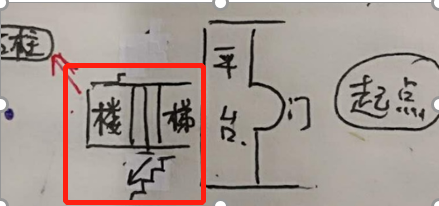 柱
楼 梯
平
台
门
起点